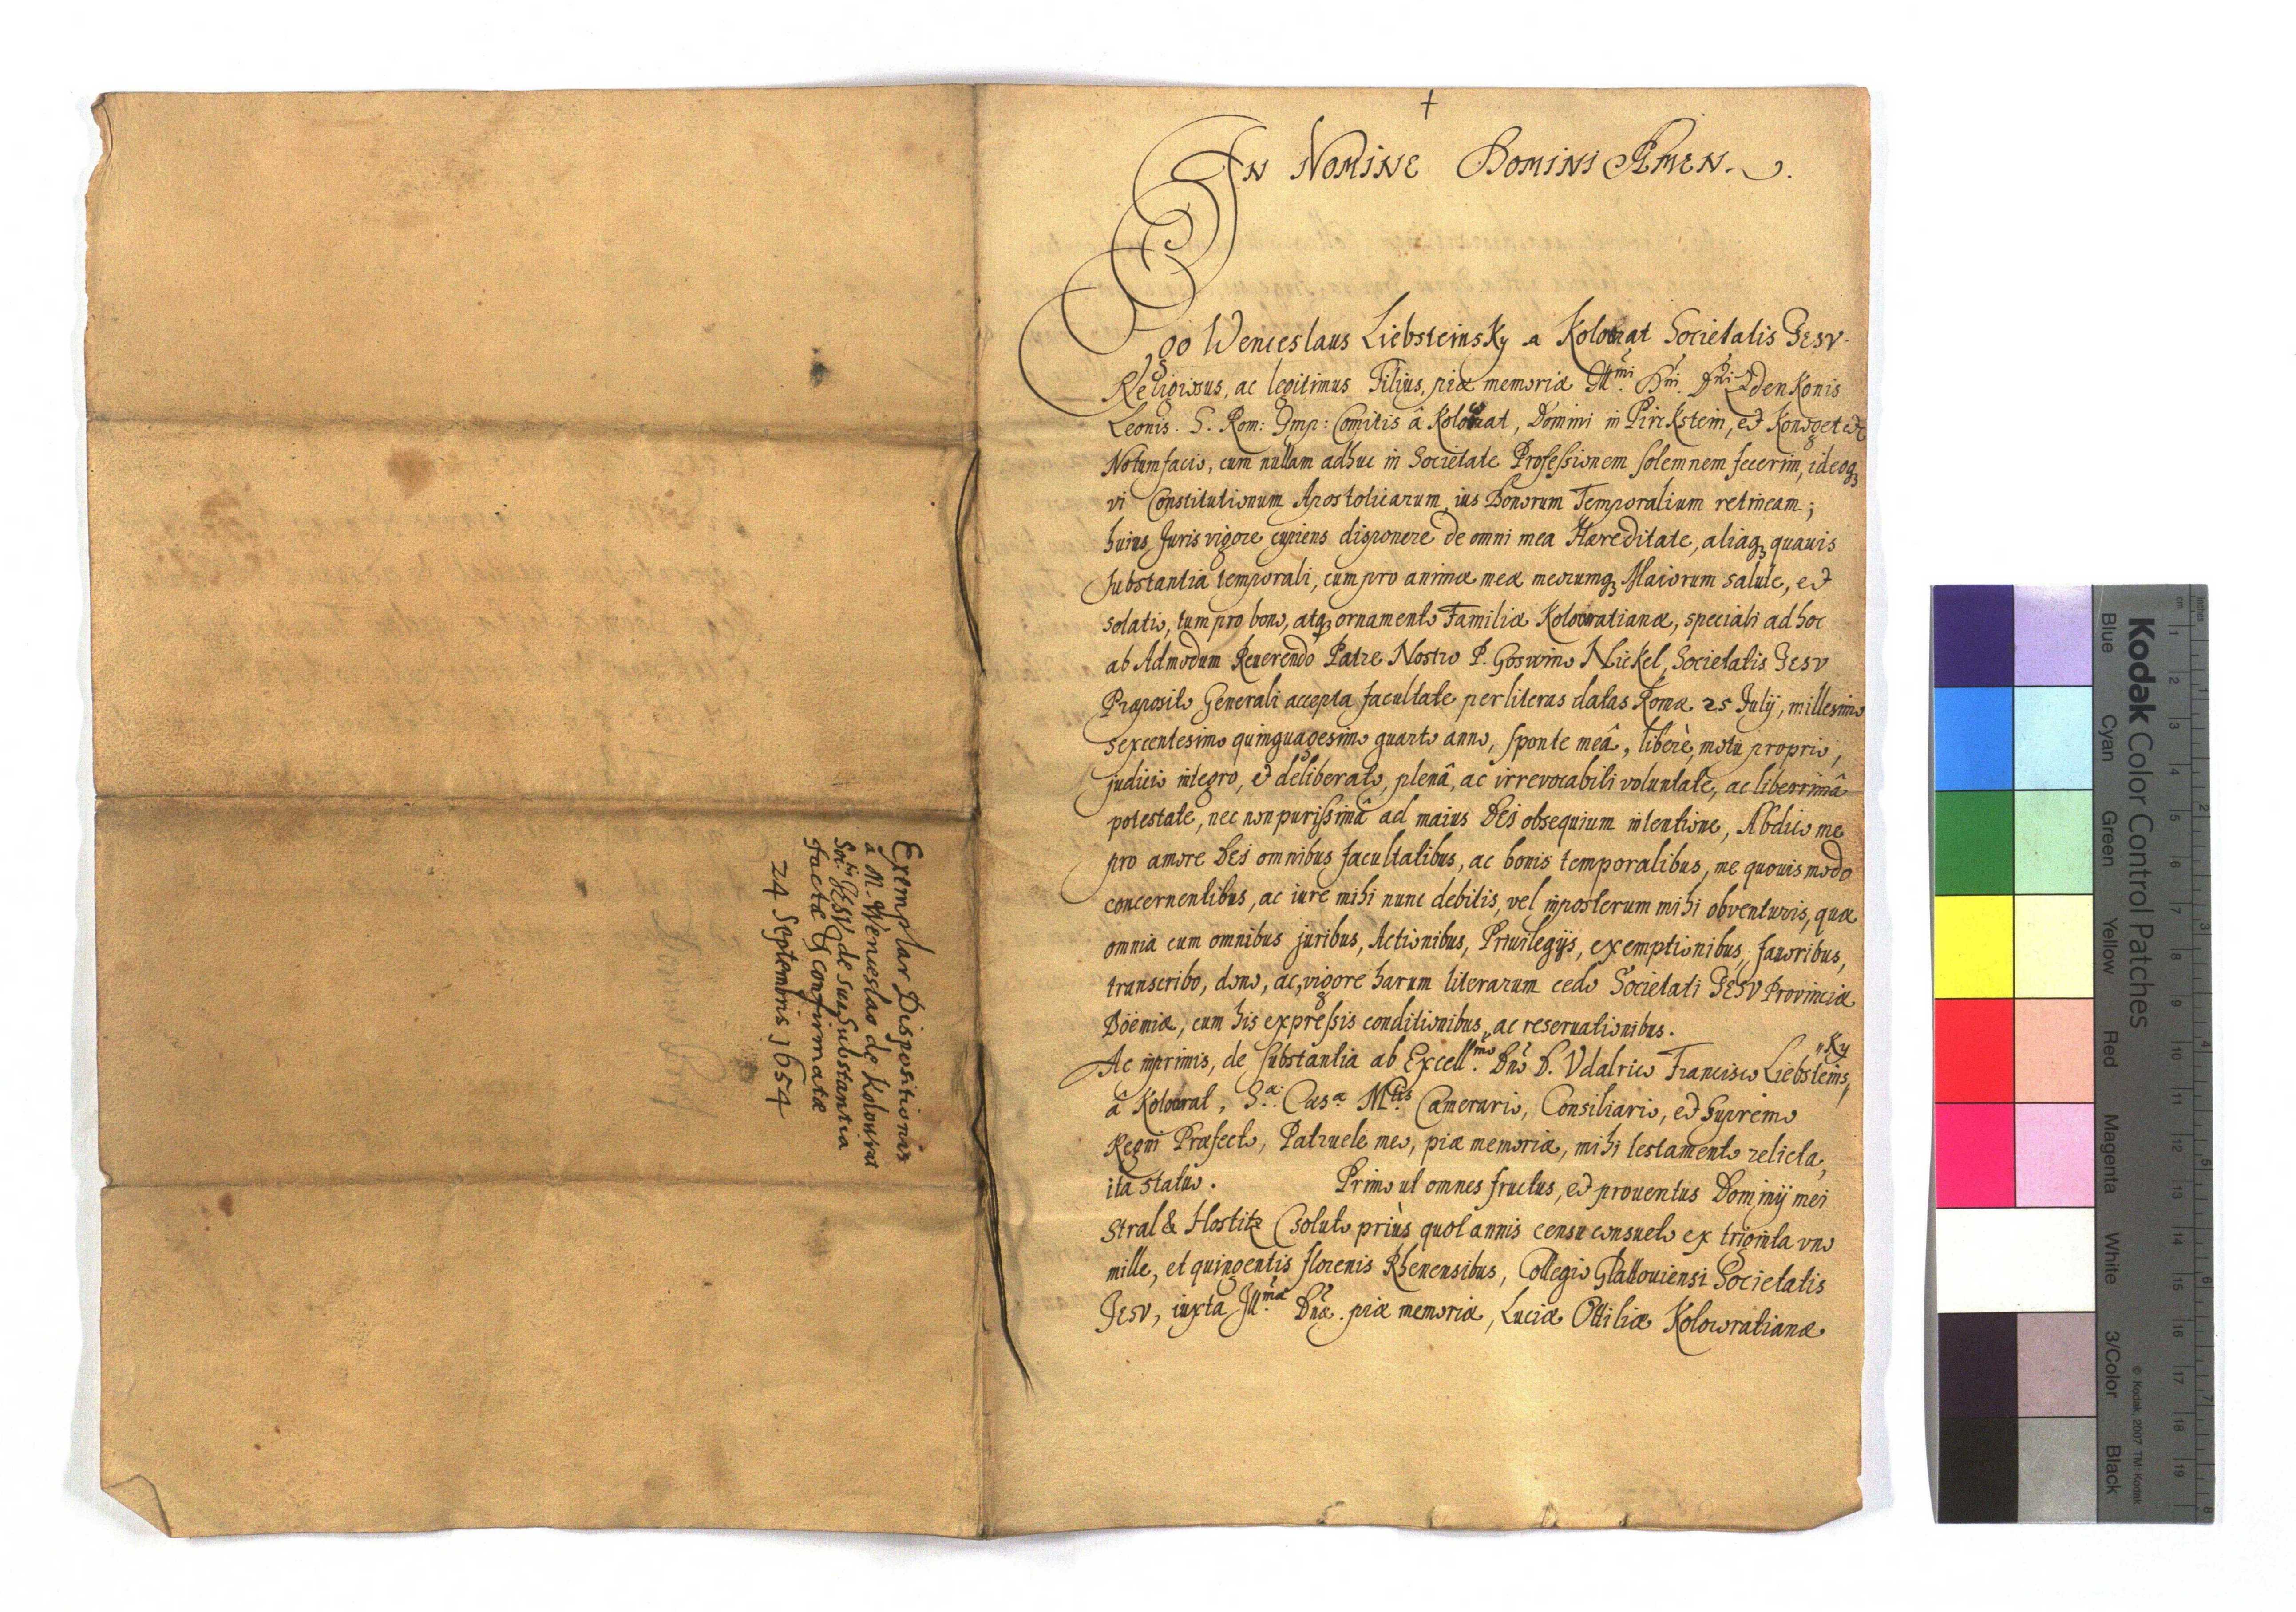 Exemplar Dispositionis
a M. Wenceslao de Kolowrat
Soc:tis JESV de sua Substantia
factæ & confirmatæ
24 Septembris 1654
+
In Nomine Domini Amen.
Ego Wenceslaus Liebsteinsky a Kolowrat Societatis Iesv
Religiosus, ac legitimus Filius, piæ memoriæ Ill.mi Dñi Dñi Zdenkonis
Leonis. S. Rom: Imp: Comitis â Kolowrat, Domini in Pirckstein, et
Notum facio, cum nullam adhuc in Societate Professionem solemnem fecerim, ideoq;
vi Constitutionum Apostolicarum, ius Bonorum Temporalium retineam;
huius Juris vigore cupiens disponere de omni mea Hæreditate, aliaq; quauis
substantia temporali, cum pro animæ meæ meorumq; Maiorum salute, et
solatio, tum pro bono, atq; ornamento Familiæ Kolowratianæ, speciali ad hoc
ab Admodum Reuerendo Patre Nostro P. Goswino Nickel, Societatis Iesv
Præposito Generali accepta facultate per literas datas Romæ 25 Julij, millesimo
sexcentesimo quinquagesimo quarto anno, sponte meâ, liberè, motu proprio,
judicio integro, et deliberato, plenâ, ac irrevocabili voluntate, ac liberrimâ
potestate, nec non purissimâ ad maius Dei obsequium intentione, Abdico me
pro amore Dei omnibus facultatibus, ac bonis temporalibus, me quouis modo
concernentibus, ac iure mihi nunc debitis, vel inposterum mihi obventuris, quæ
omnia cum omnibus juribus, Actionibus, Priuilegijs, exemptionibus, fauoribus,
transcribo, dono, ac, vigore harum literarum cedo Societati Iesv Provinciæ
Böemiæ, cum his expressis conditionibus, ac reseruationibus.
Ac inprimis, de substantia ab Excell.mo Dño D. Vdalrico Francisco Liebsteins,,
,,Ky
â Kolowrat, S.æ Cæs.æ M.tis Camerario, Consiliario, et Supremo
Regni Præfecto, Patruele meo, piæ memoriæ, mihi testamento relicta,
ita statuo. Primo ut omnes fructus, et prouentus Dominij mei
Stral & Hostitz (soluto priùs quotannis censu consueto ex triginta vno
mille, et quingentis florenis Rhenensibus, Collegio Glattouiensi Societatis
Iesv, iuxta Ill.mæ Dñæ. piæ memoriæ, Luciæ Ottiliæ Kolowratianæ
Kodak Color Control Patches
© Kodak, 2007 TM: Kodak
Blue Cyan Green Yellow Red Magenta White 3/Color Black
inches 1 2 3 4 5 6 7 8
cm 1 2 3 4 5 6 7 8 9 10 11 12 13 14 15 16 17 18 19